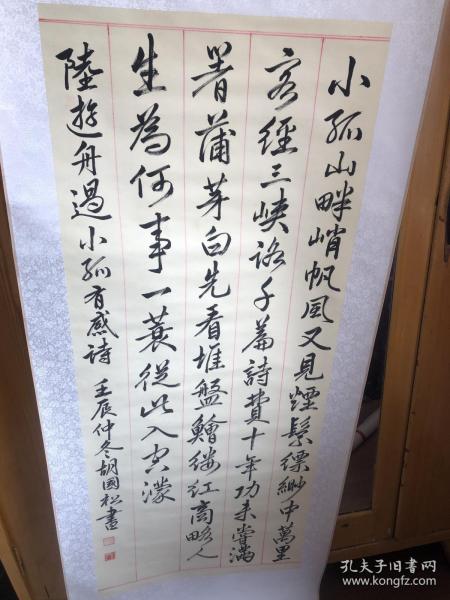 小孤山畔峭帆風又見煙鬟縹緲中萬里
客經三峽路千篇詩費十年功未嘗滿
箸蒲芽白先看堆盤鱠縷紅商略人
生為何事一蓑從此入空濛
陸遊舟過小孤有感詩 壬辰仲冬胡國松書
孔夫子旧书网
www.kongfz.com